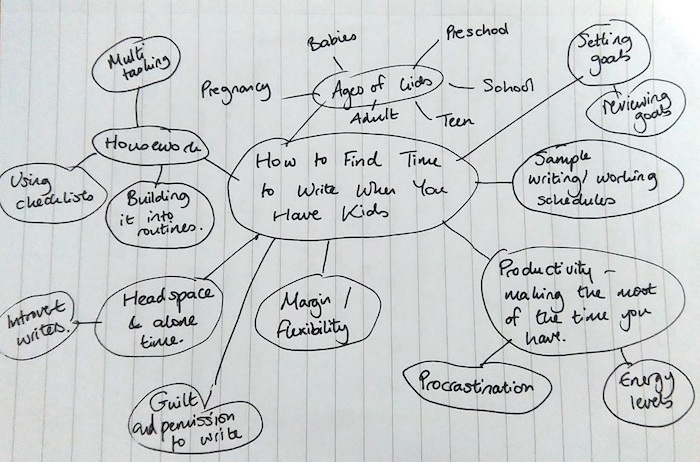 Multi
tasking
Babies
Preschool
Setting
goals
Pregnancy
Ages of kids
School
Adult
Teen
reviewing
goals
Housework
How to Find Time
to Write When You
Have Kids
Sample
writing/working
schedules
Using
checklists
Building
it into
routines.
Productivity -
making the most
of the time you
have.
Headspace
& alone
time.
Margin /
flexibility
Introvert
writes.
Procrastination
Energy
levels
Guilt
and permission
to write